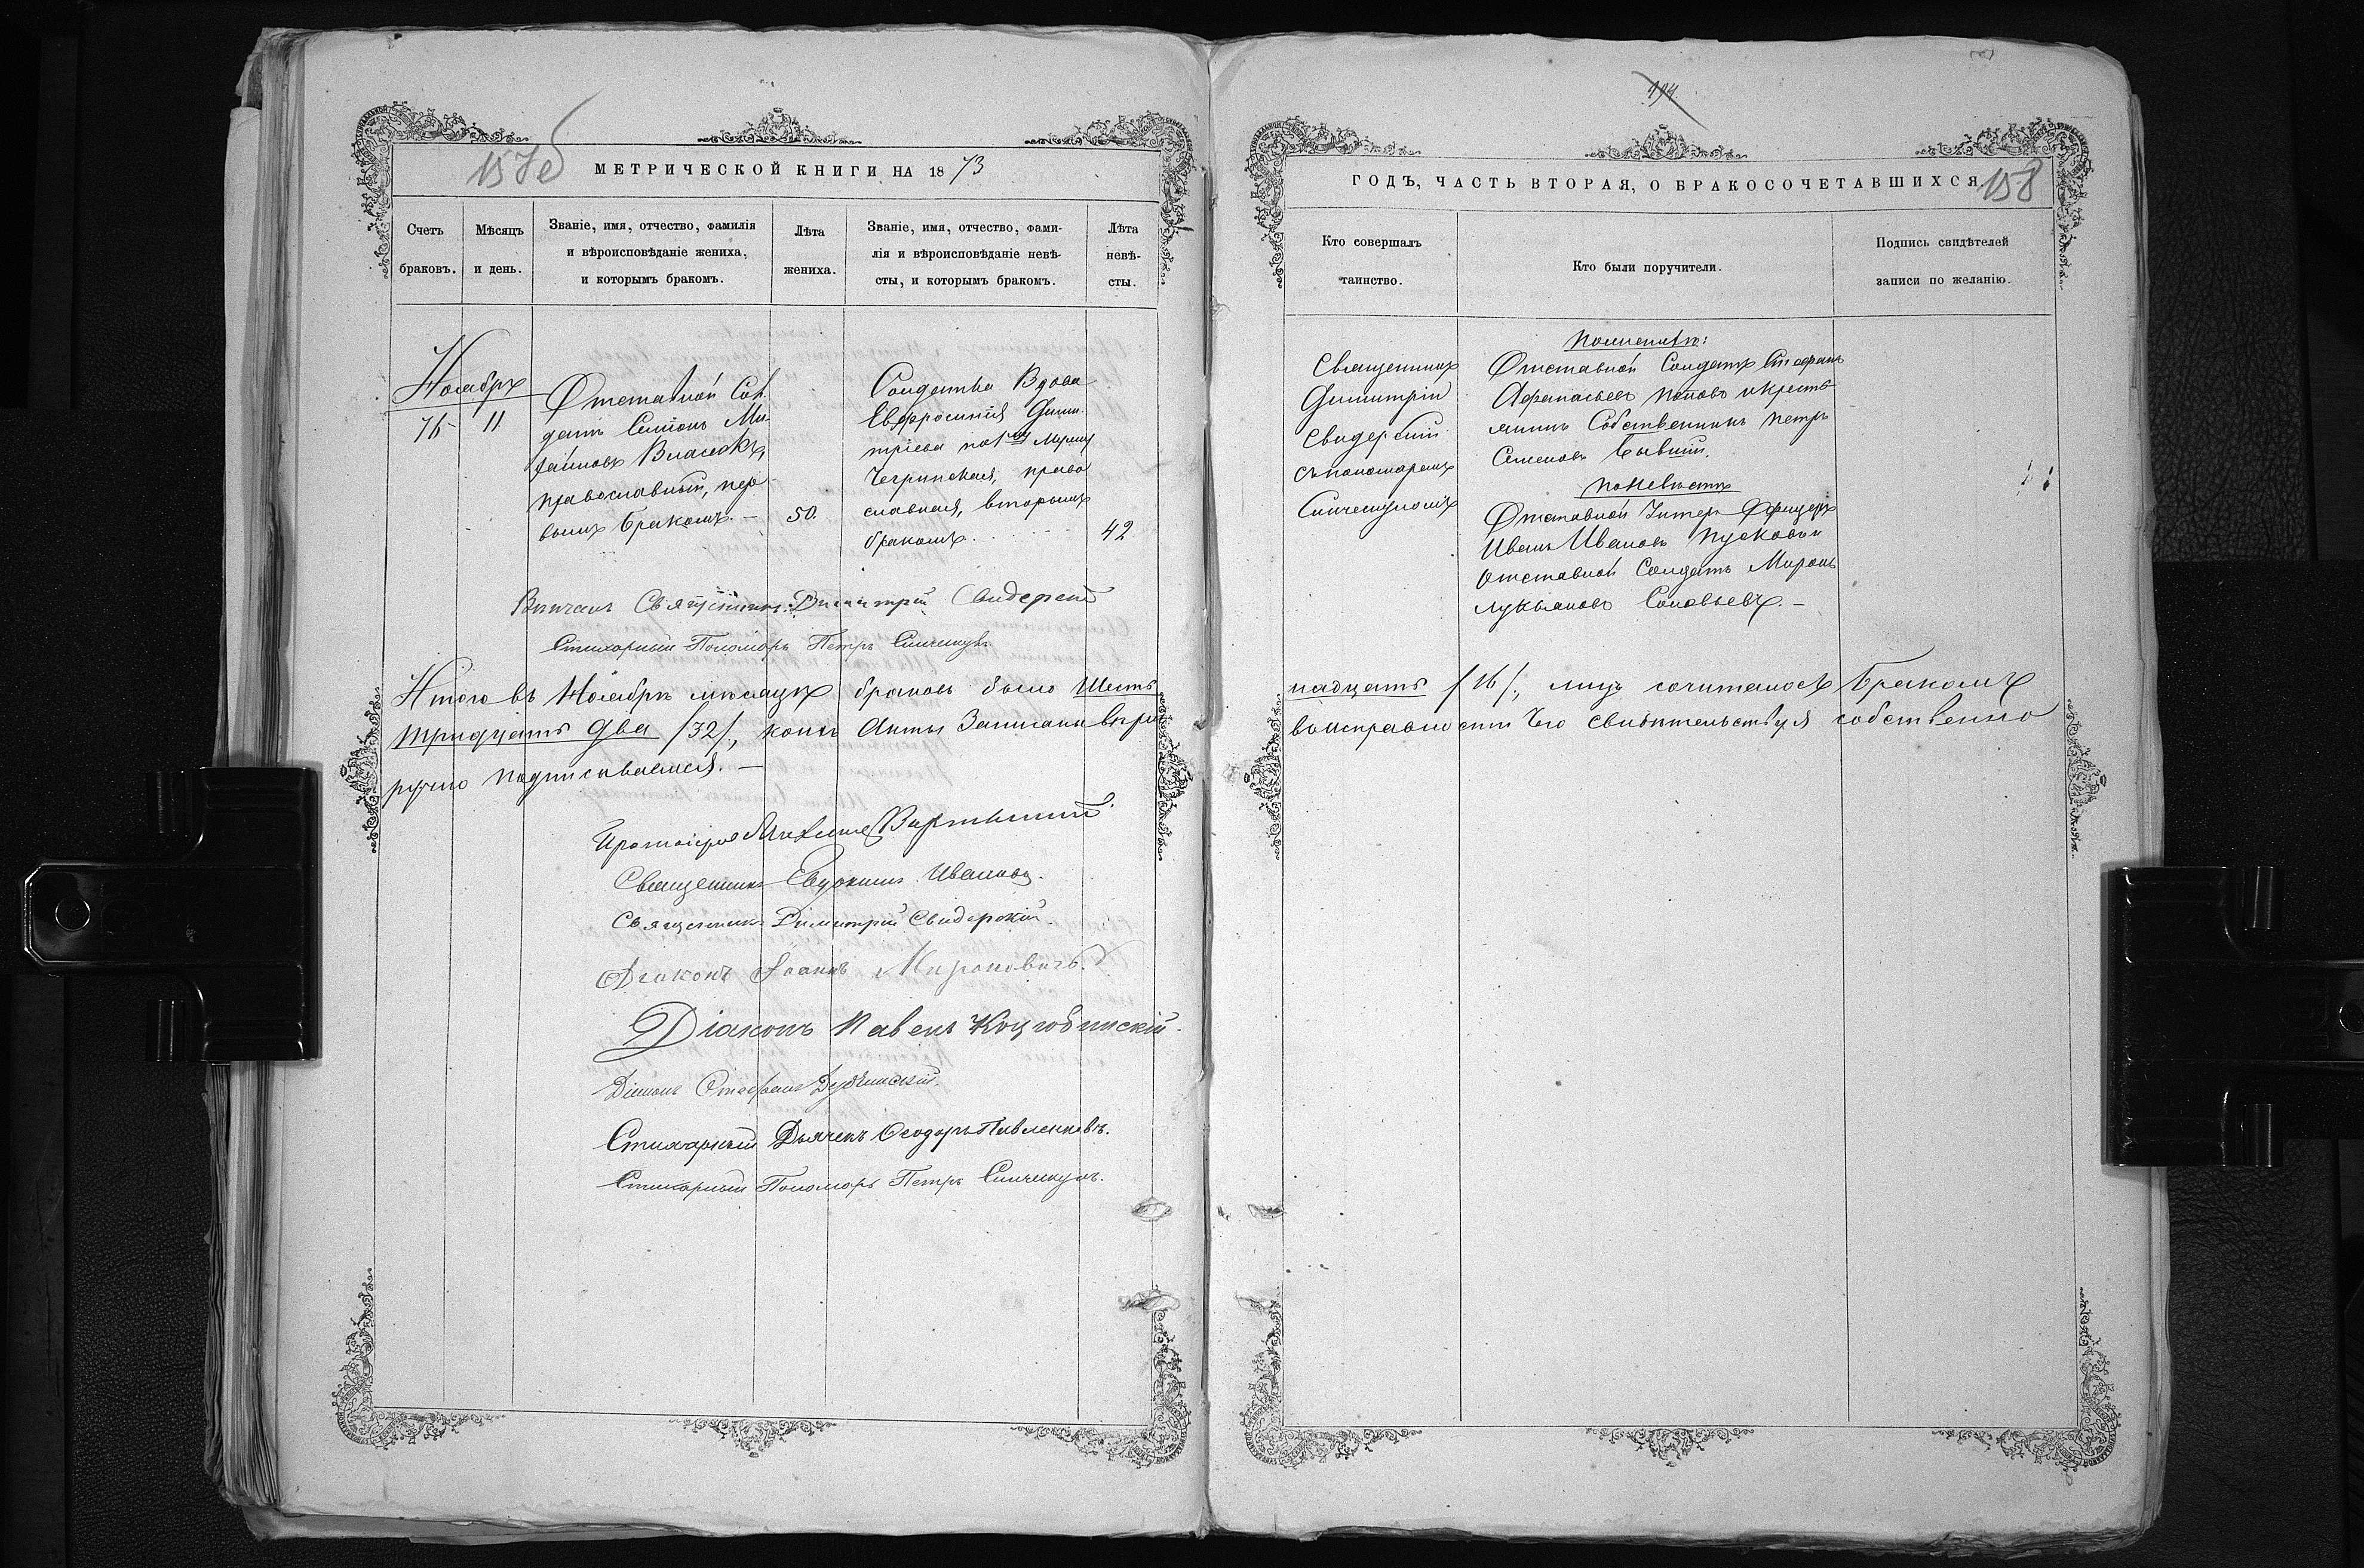 157об
МЕТРИЧЕСКОЙ КНИГИ НА 1873
Счетъ браковъ.
Мѣсяцъ и день.
Званіе, имя, отчество, фамилія
и вѣроисповѣданіе жениха,
и которымъ бракомъ.
Лѣта жениха.
Званіе, имя, отчество, фами-
лія и вѣроисповѣданіе невѣ-
сты, и которымъ бракомъ.
Лѣта невѣ-
сты.
Ноябрь
76
11
Отставной Сол
датъ Симіонъ Ми
хайловъ Власюкъ,
православный, пер
вымъ бракомъ. —
50.
Солдатка Вдова
Евфросинія Дими
тріева по 1му Мужу
Чегринская, право
славная, вторымъ
бракомъ.
42
Вѣнчалъ Священникъ Димитрій Свидерскій
Стихарный Пономарь Петръ Синчекулъ
Итого въ Ноябрѣ мѣсяцѣ браковъ было Шест
тридцать два /32/, коихъ Акты Записаны впра
ручно подписываемся. —
Протоіерей Михаилъ
Священникъ Евдокимъ Ивановъ.
Священникъ Димитрій Свидерскій
Діаконъ Іоаннъ Мироновичъ.
Діаконъ Павелъ Коцюбинскій.
Діаконъ Стефанъ Дубинскій.
Стихарный Дьячекъ Ѳеодоръ Павленковъ.
Стихарный Пономарь Петръ Синчекулъ.
194.
ГОДЪ, ЧАСТЬ ВТОРАЯ, О БРАКОСОЧЕТАВШИХСЯ
158
Кто совершалъ
таинство.
Кто были поручители.
Подпись свидѣтелей
записи по желанію.
Священникъ
Димитрій
Свидерскій
съ пономаремъ
Синчекуломъ
по женихѣ:
Отставной Солдатъ Стефанъ
Афанасьевъ Поповъ и крестья
янинъ Собственникъ Петръ
Семеновъ Бывшій.
по невѣстѣ
Отставной Унтеръ Офицеръ
Иванъ Ивановъ Пусковъ и
отставной Солдатъ Миронъ
Лукьяновъ Соловьевъ. —
надцать /16/, лицъ сочиталось Бракомъ
воисправности Чего свидѣтельствуя собственно